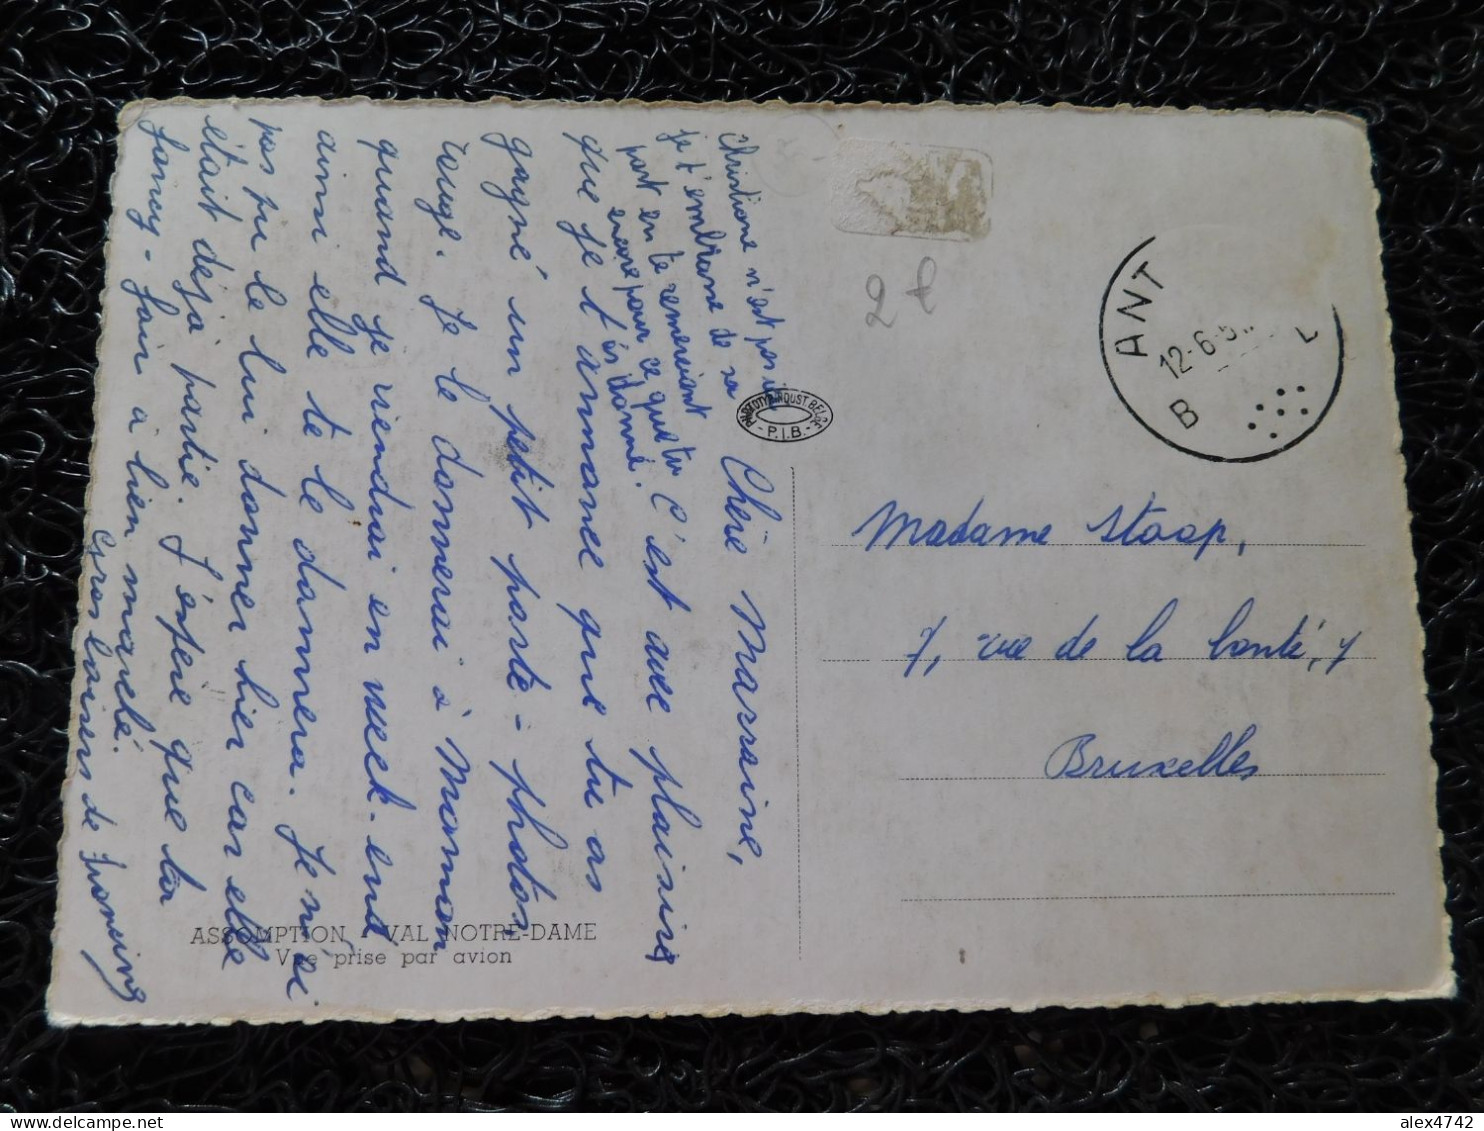 Chère Marraine,
C'est avec plaisir
que je t'annonce que tu as
gagné un petit porte-photos
rouge. Je le donnerai à Maman
quand je viendrai en week-end
ainsi elle te le donnera. Je n'ai
pas pu le lui donner hier car elle
était déjà partie. J'espère que ta
fancy-fair a bien marché.
Gros baisers de
Christiane n'est pas ici
je t'embrasse de sa
part en te remerciant
encore pour ce que tu
t'as donné.
ASSOMPTION VAL NOTRE-DAME
Vue prise par avion
PHOTOTYP. INDUST. BELGE
- P.I.B. -
2 €
ANT L
12-6-5
B
Madame Stoop,
7, rue de la bonté, 7
Bruxelles
alex4742